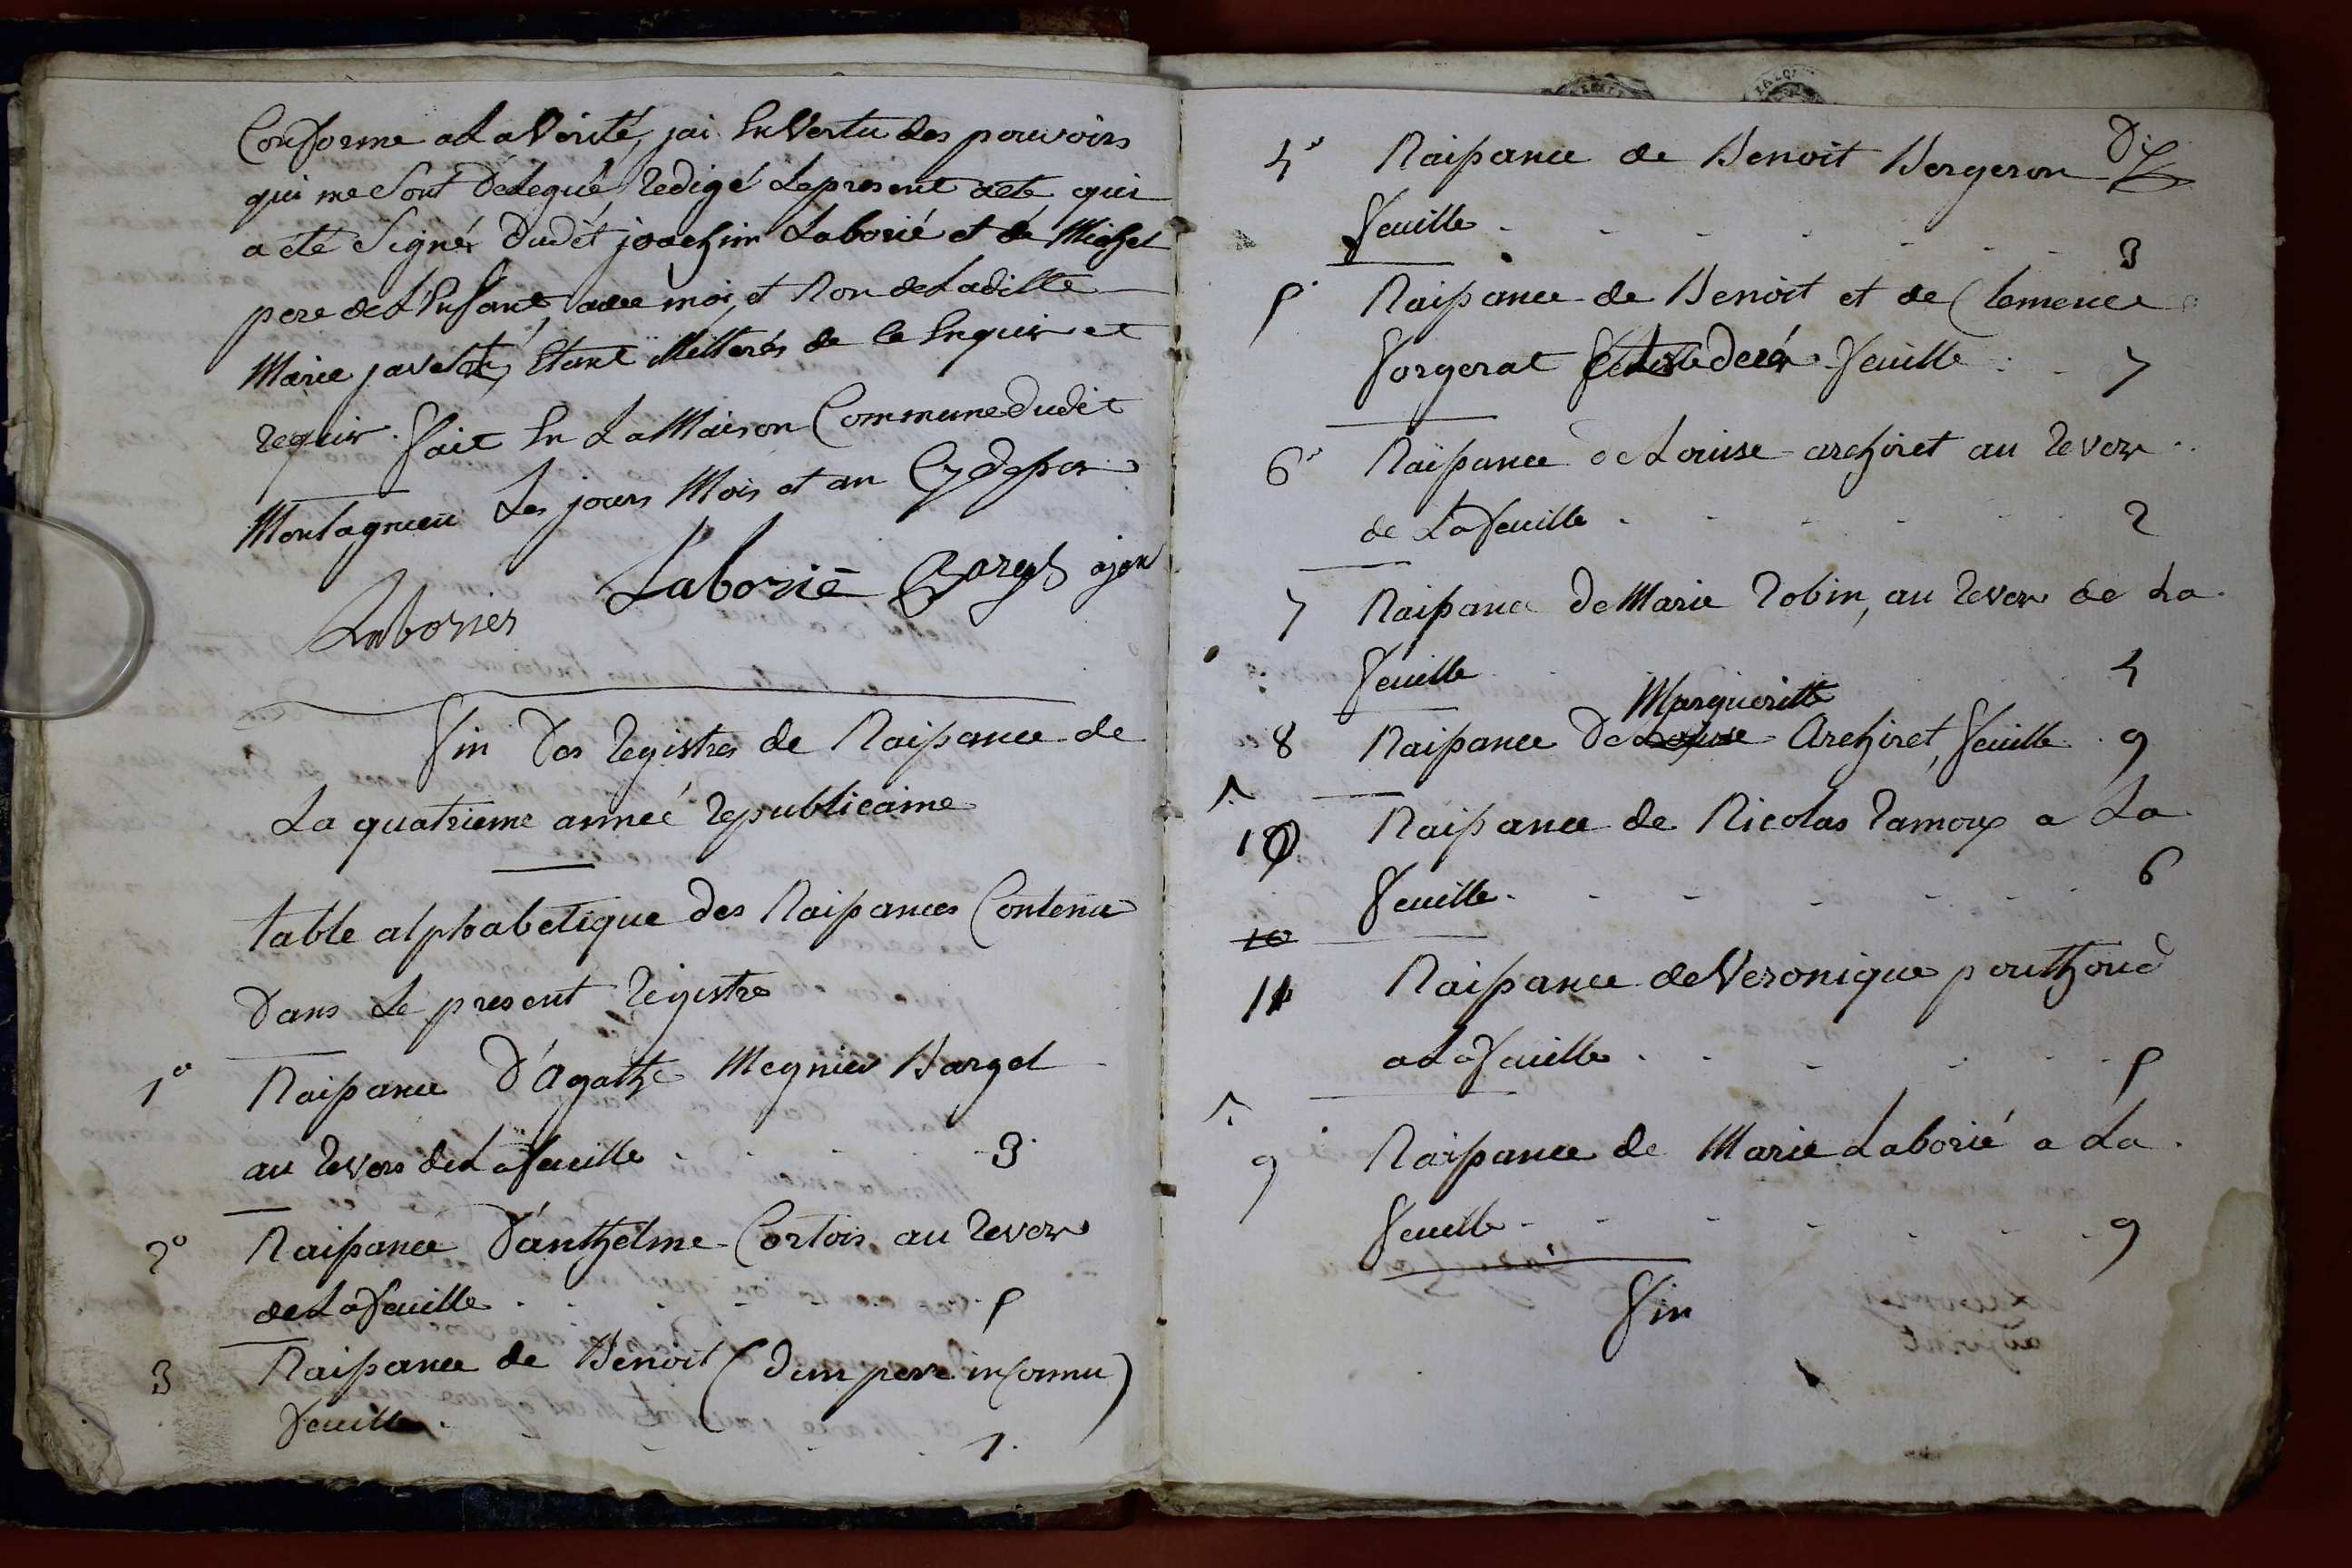 Conforme a La Vérité, jai En Vertu des pouvoirs
qui me Sont Délegué, Redigé Le present acte, qui
a eté Signér dudit joachim Laborié et de Michel
pere de L'Enfant, avec moi, et Non de Laditte
Marie javelot, Etant illitterés de ce Enquis et
requis. fait En La Maison Commune dudit
Montagnieu Les jours Mois et an Cy dessus
Laborier Laborié
fin Des Registres de Naissance de
La quatrieme anneé Republicaine
table alphabetique des Naissances Contenu
Dans Le present Registre
1° Naissance D'agathe Megnier Barget
au Revers de La feuille 3
2° Naissance D'anthelme Cortois au Revers
de La feuille 5
3 Naissance de Benoit (Dun pere inconnu)
feuille 1.
4° Naissance de Benoit Bergeron
feuille 3
5° Naissance de Benoit et de Clemence
forgerat feuille 7
6° Naissance de Louise archiret au Revers
de La feuille 2
7 Naissance de Marie Robin, au Revers de La
feuille 4
Margueritte
8 Naissance De Louise Archiret, feuille 9
10 Naissance de Nicolas Ramoux a La
feuille 6
10
11 Naissance de Veronique pouthoud
a La feuille 5
9 Naissance de Marie Laborié a La
feuille 9
fin